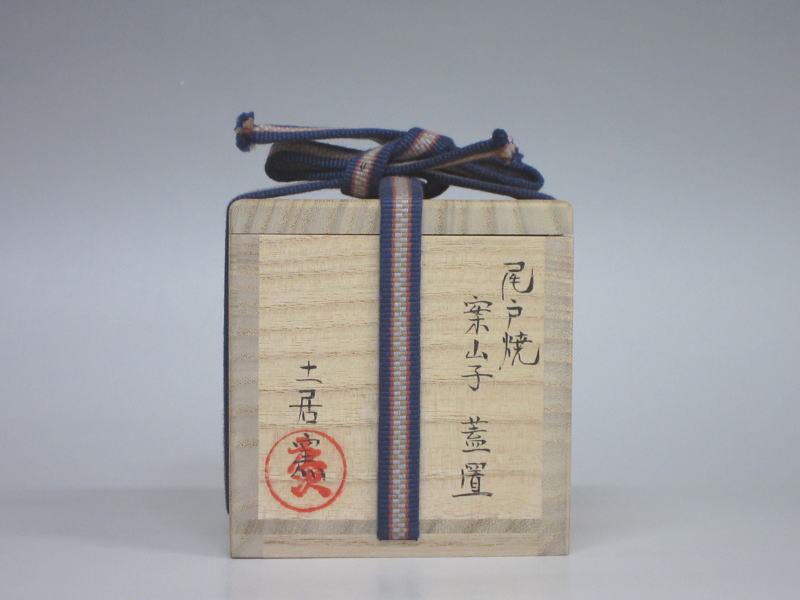 尾戸焼
案山子 蓋置
土居 窯